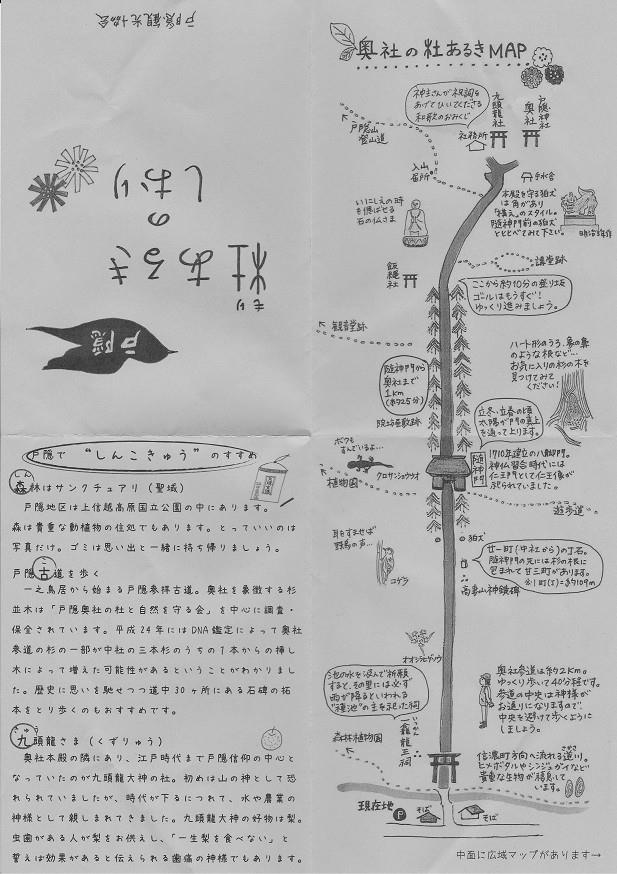 戸隠観光協会
戸隠
杜あるき
もり
の
しおり
戸隠で “しんこきゅう” のすすめ
しん
森林はサンクチュアリ (聖域)
戸隠地区は上信越高原国立公園の中にあります。
森は貴重な動植物の住処でもあります。とっていいのは
写真だけ。ゴミは思い出と一緒に持ち帰りましょう。
こ
戸隠古道を歩く
一之鳥居から始まる戸隠参拝古道。奥社を象徴する杉
並木は「戸隠奥社の杜と自然を守る会」を中心に調査・
保全されています。平成24年にはDNA鑑定によって奥社
参道の杉の一部が中社の三本杉のうちの1本からの挿し
木によって増えた可能性があるということがわかりまし
た。歴史に思いを馳せつつ道中30ヶ所にある石碑の拓
本をとり歩くのもおすすめです。
きゅう
九頭龍さま (くずりゅう)
奥社本殿の隣にあり、江戸時代まで戸隠信仰の中心と
なっていたのが九頭龍大神の社。初めは山の神として恐
れられていましたが、時代が下るにつれて、水や農業の
神様として親しまれてきました。九頭龍大神の好物は梨。
虫歯がある人が梨をお供えし、「一生梨を食べない」と
誓えば効果があると伝えられる歯痛の神様でもあります。
奥社の杜あるきMAP
神主さんが祝詞を
あげてひいてくださる
和歌のおみくじ
社務所
九頭龍社
戸隠神社
奥社
戸隠山
登山道
入山
届所
手水舎
本殿を守る狛犬
は角があり
"構え"のスタイル。
随神門前の狛犬
とくらべてみて下さい。
明治35年作
いにしえの時
を偲ばせる
石の仏さま
講堂跡
飯縄社
ここから約10分の登り坂
ゴールはもうすぐ!
ゆっくり進みましょう。
観音堂跡
ハート形のうろ、象の鼻
のような根など…
お気に入りの杉の木を
見つけてみて
ください!
随神門から
奥社まで
1km
(約25分)
立冬、立春の頃
太陽が門の真上
を通って上ります。
院坊屋敷跡
ボクも
すんでいるよ…
クロサンショウウオ
植物園
随神門
1710年建立の八脚門。
神仏習合時代には
仁王門として仁王像が
祀られていました。
遊歩道
耳をすませば
野鳥の声…
コゲラ
狛犬
廿一町(中社から)の丁石。
随神門の先には杉の根に
包まれて廿三町があります。
※1町(丁)=約109m
高妻山神鏡碑
オオシラヒゲソウ
池の水を汲んで祈願
すると、その里には必ず
雨が降るといわれる
"種池"の主を祀った祠
いっかん
一龕龍王祠
奥社参道は約2km。
ゆっくり歩いて40分程です。
参道の中央は神様が
お通りになりますので
中央を避けて歩くように
しましょう。
森林植物園
さかさ
信濃町方向へ流れる逆川。
ヒメボタルやシンジュガイなど
貴重な生物が棲息して
います。
現在地
P
そば
そば
中面に広域マップがあります→